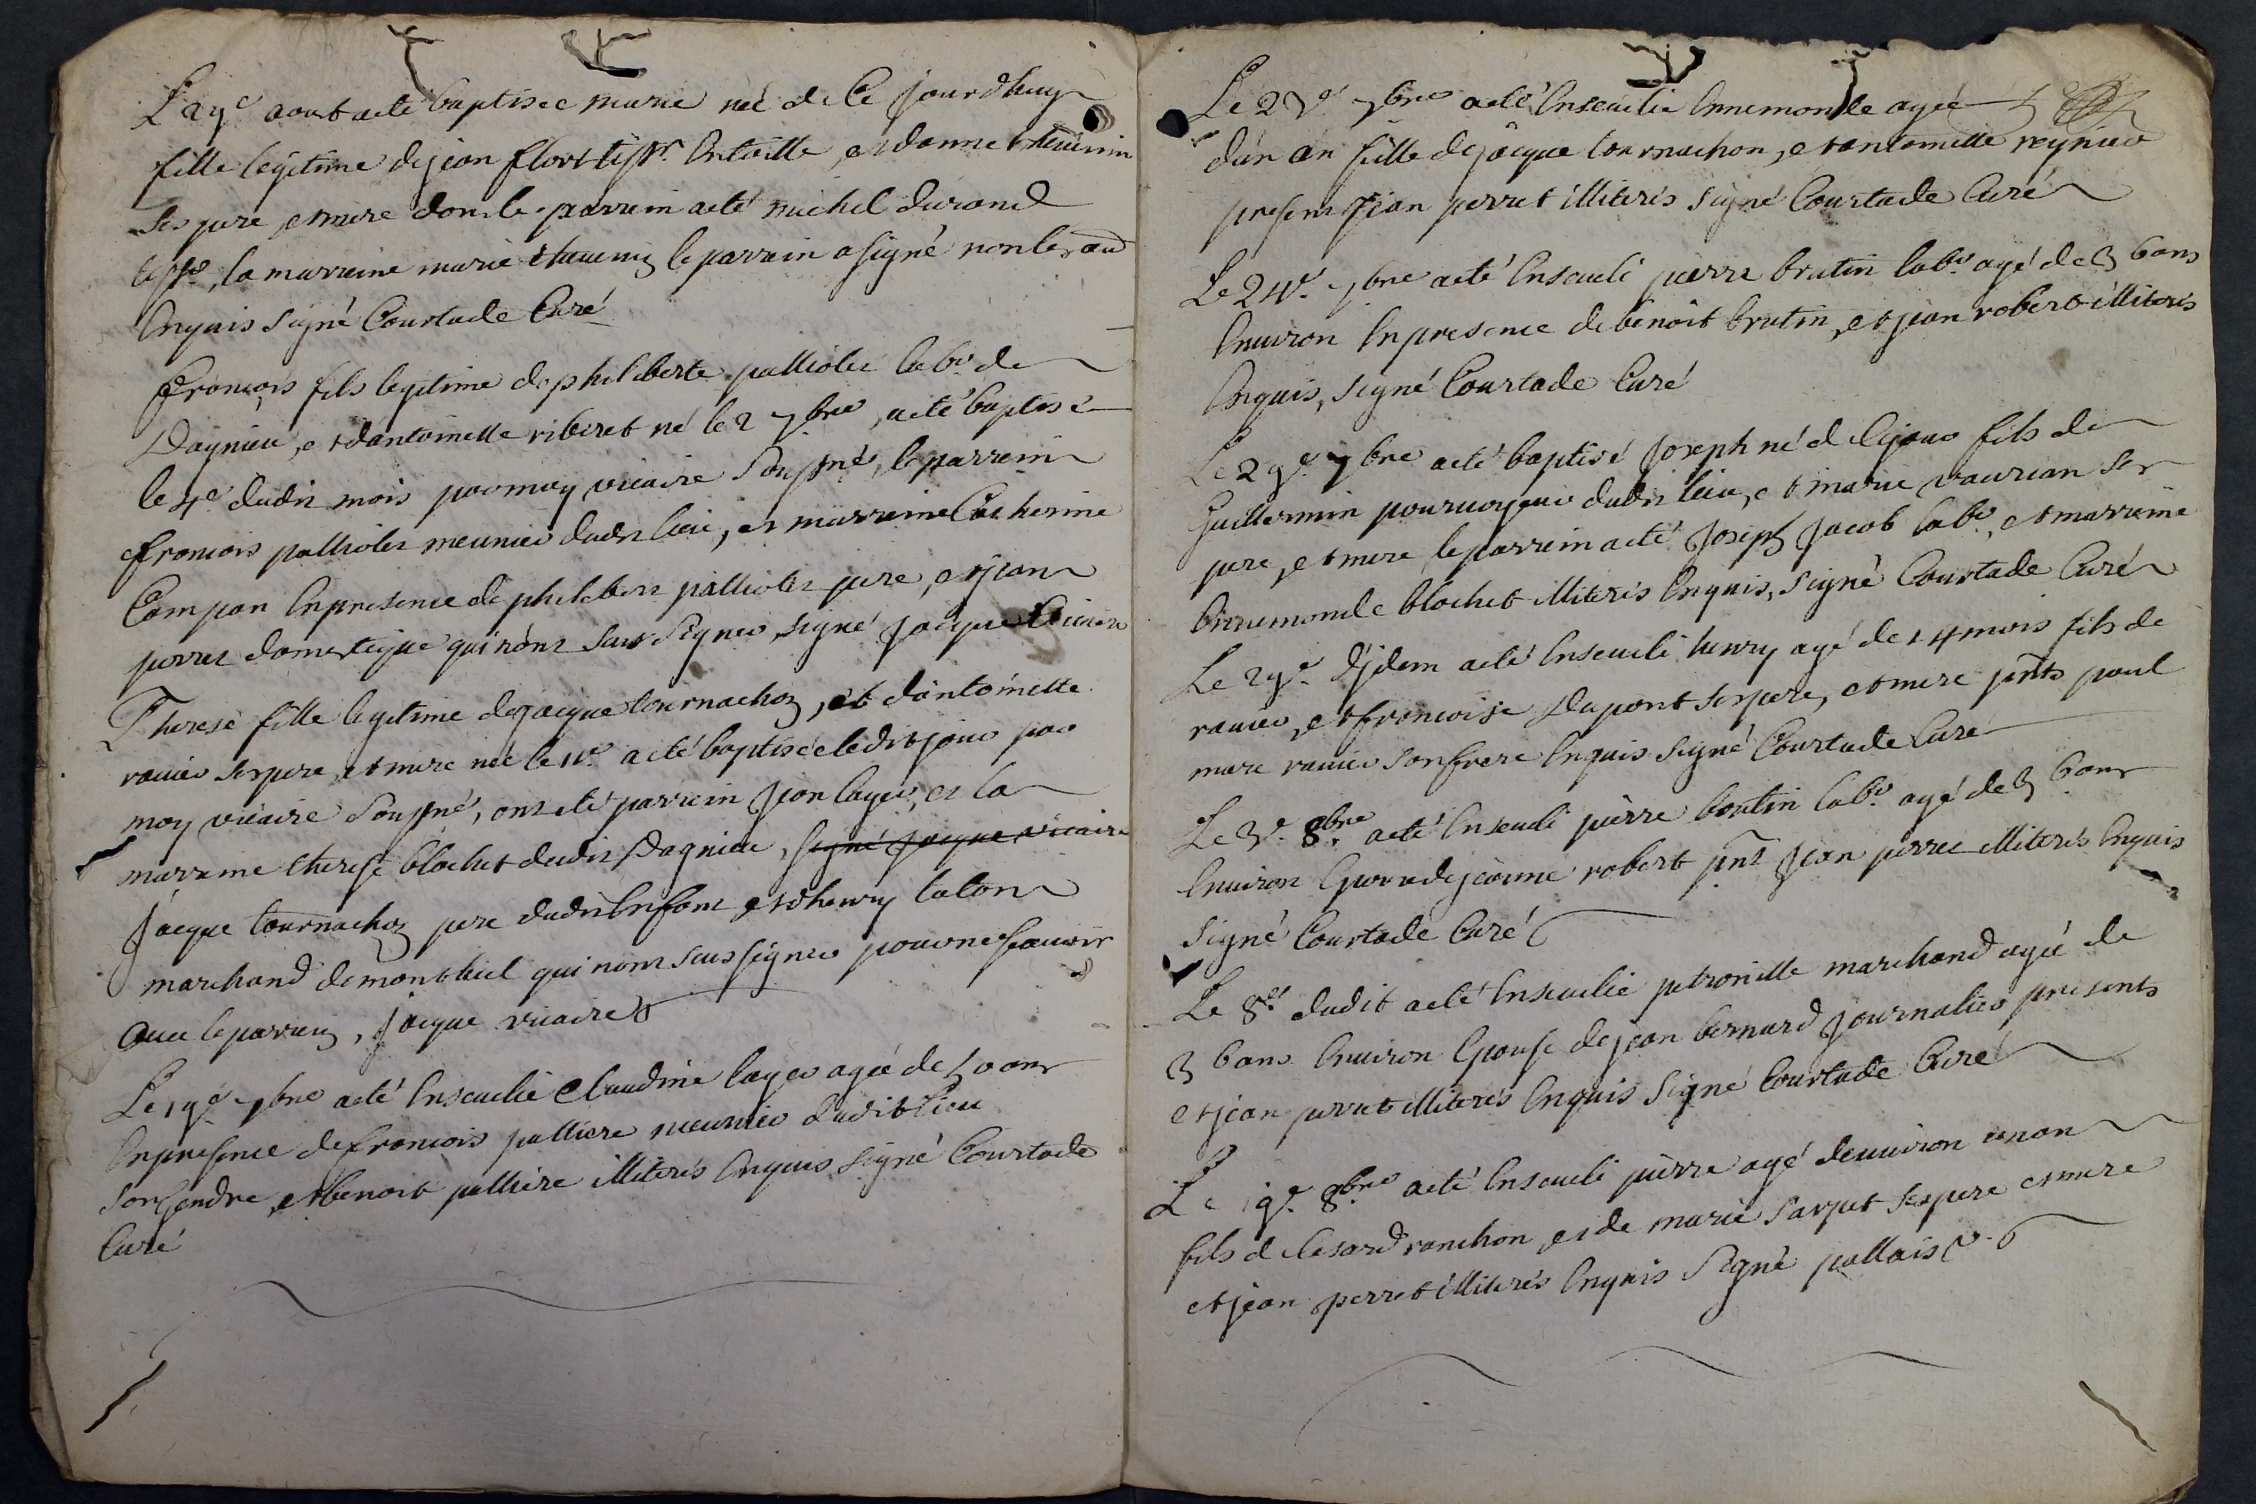 Le 29e aoust a eté baptisée marie neé de ce jourdhuy
fille légitime de jean flort tissr. en toille, et danne thevenin
ses pere, et mere dont le parrain a eté michel durand
tissr., la marraine marie thevenin le parrain a signé non les aud
enquis signé Courtade Curé
françois fils legitime de philiberte palliolet labr. de
Dagnieu, et dantoinette riberet né le 2 7bre, a eté baptisé
le 4e dudit mois par moy vicaire soussigné, le parrein
francois palliolet meunier dudit lieu, et marraine Catherine
Compan en presence de philebert palliolet pere, et jean
perret domestique qui n'ont seus signer, signé jacque vicaire
Therese fille legitime de jacque tournachon, et d'antoinette
ravier ses pere, et mere neé le 11e. a eté baptisée ledit jour par
moy vicaire soussné, ont eté parrein jean layer, et la
marraine therese blochet dudit Dagnieu, signé jacque vicaire
jacque tournachon pere dudit enfant, et henry talon
marchand de montluel qui n'ont seus signer pour ne sçauoir
avec le parrein, jacque vicaire
Le 19e. 7bre a eté enseuelie Claudine layer ageé de 50 ans
en presence de francois palliere meunier dudit lieu
son gendre, et benoit palliere illiterés enquis signé Courtade
Curé
Le 23e 7bre a eté enseuelie ennemonde ageé
d'un an fille de jacque tournachon, et antoinette reynier
presens jean perret illiterés signé Courtade Curé
Le 24e. 7bre a eté enseueli pierre brutin labr. agé de 36 ans
enuiron en presence de benoit brutin, et jean robert illiterés
enquis, signé Courtade Curé
Le 29e. 7bre a eté baptisé joseph né de ce jour fils de
Guillermin pouruoyeur dudit lieu, et marie vaurian ses
pere, et mere le parrein a eté joseph jacob labr., et marreine
ennemonde blochet illiterés enquis, signé Courtade Curé
Le 29e. d'jdem a eté enseueli henry agé de 14 mois fils de
ravier, et francoise Dupont ses pere, et mere pnts paul
marc ravier son frere enquis signé Courtade Curé
Le 3e. 8bre. a eté enseueli pierre boutin labr. agé de 36 ans
enuiron epoux de jeanne robert pnt jean perret illiterés enquis
signé Courtade Curé
Le 8e dudit a eté enseuelie petronille marchand ageé de
36 ans enuiron epouse de jean bernard journalier presents
et jean perret illiterés enquis signé Courtade Curé
Le 19e. 8bre a eté enseueli pierre agé denuiron un an
fils de Cesard ranchon, et de marie sarpet ses pere et mere
et jean perret illiterés enquis signé pallais v.